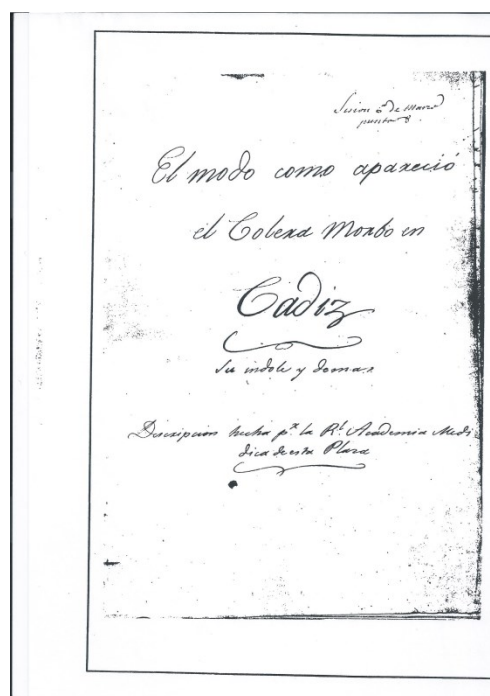 Sesion 6 de Marzo
punto 8
El modo como apareció
el Colera Morbo en
Cadiz
Su indole y demas
Descripcion hecha pr. la Rl. Academia Medi
dica de esta Plaza